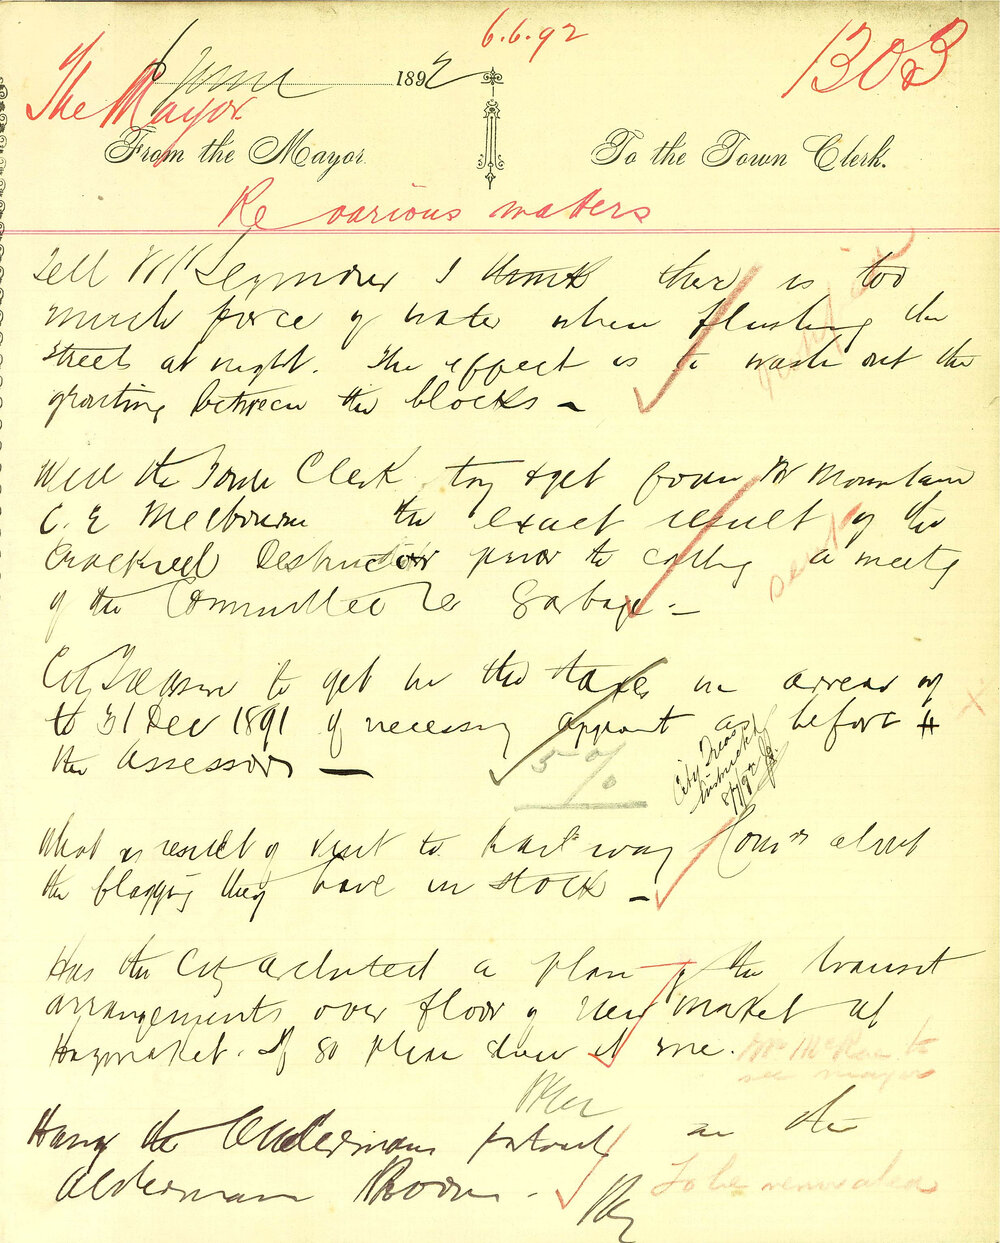 6.6.92
1303
6 June 1892
The Mayor
From the Mayor.
To the Town Clerk.
Re various matters
Tell Mr Seymour I think there is too
much force of water when flushing the
streets at night. The effect is to wash out the
grouting between the blocks –
Will the Town Clerk try & get from Mr Mountain
C.E Melbourne the exact result of the
Cracknell Destructor prior to calling a meetg
of the Committee re Garbage –
City Treasurer to get in the taxes in arrear
to 31 Dec 1891 if necessary appoint as before
the assessors –
5%
City Treas
instructed
What is result of visit to Railway Comrs about
the flagging they have in stock –
Has the City Architect a plan of the transit
arrangements over floor of new market at
Haymarket. If so please show it me.
Mr McRae to
see mayor
Hang the Aldermans portrait in the
Aldermans Room.
To be renovated